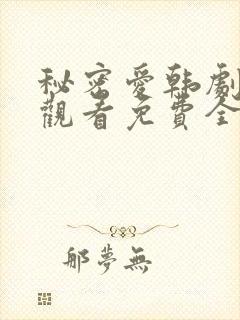 秘密愛韩劇
觀看免費全
那夢無